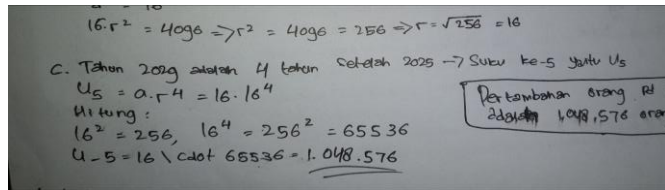 16.r² = 4096 => r² = 4096 = 256 => r = √256 = 16
C. Tahun 2029 adalah 4 tahun setelah 2025 -> Suku ke-5 yaitu U5
U5 = a.r⁴ = 16.16⁴
Hitung :
16² = 256, 16⁴ = 256² = 65536
U-5 = 16 \ cdot 65536 = 1.048.576
Pertambahan orang
adalah 1,048,576 oran